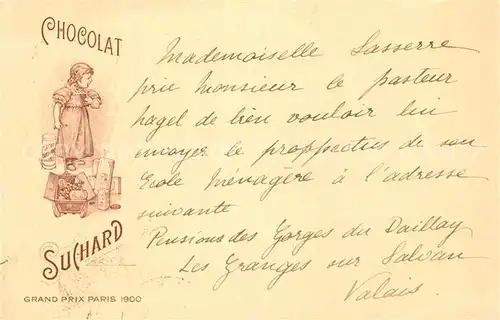 CHOCOLAT
Mademoiselle Lasserre
prie Monsieur le pasteur
hagel de bien vouloir lui
envoyer le proppectus de son
Ecole Ménagère à l'adresse
suivante
Pensions des Gorges du Daillay
Les Granges sur Salvan
Valais.
SUCHARD
GRAND PRIX PARIS 1900